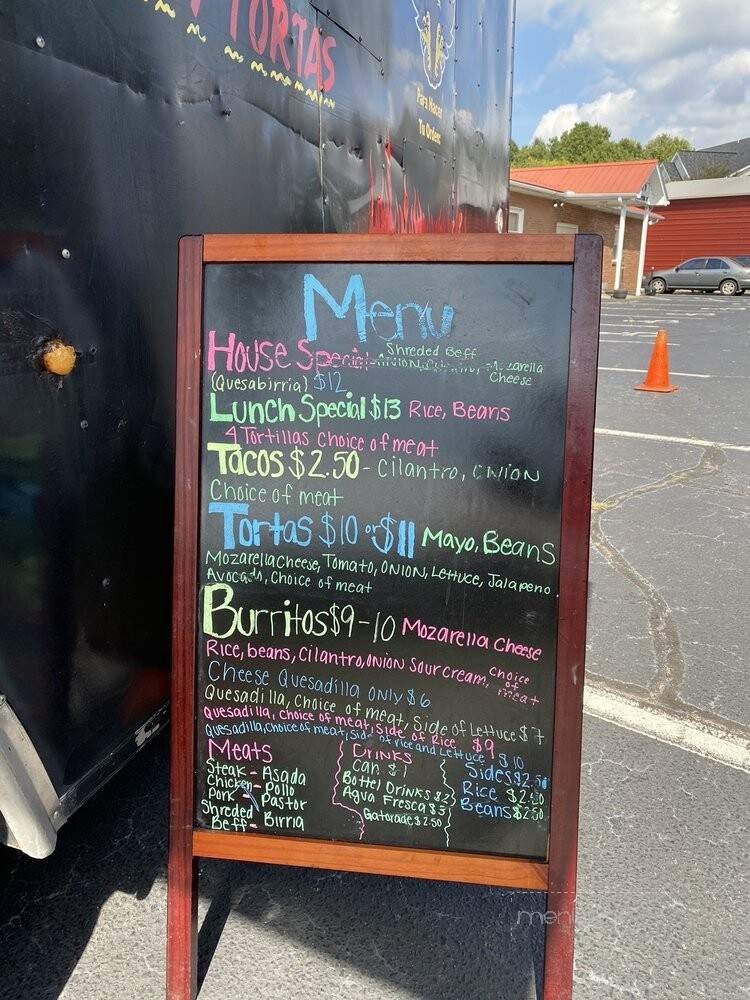 TORTAS
Para Hacer
Tu Orden
Menu
House Special Shredded Beff
ONION, Cilantro, Mozarella
Cheese
(Quesabirria) $12
Lunch Special $13 Rice, Beans
4 Tortillas Choice of meat
Tacos $2.50 - Cilantro, ONION
Choice of meat
Tortas $10 or $11 Mayo, Beans
Mozarella Cheese, Tomato, ONION, Lettuce, Jalapeno.
Avocado, Choice of meat
Burritos $9-10 Mozarella Cheese
Rice, beans, cilantro, ONION Sour cream, Choice
of
meat
Cheese Quesadilla ONLY $6
Quesadilla, Choice of meat, Side of Lettuce $7
Quesadilla, choice of meat, side of Rice $9
Quesadilla, choice of meat, side of rice and Lettuce $10
Meats
Steak - Asada
Chicken - Pollo
Pork - Pastor
Shredded
Beff - Birria
Drinks
Can $1
Bottel Drinks $2
Agua Fresca $3
Gatorade $2.50
Sides $2.50
Rice $2.50
Beans $2.50